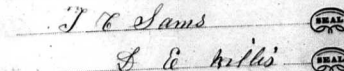 J E Sams SEAL
D E Willis SEAL